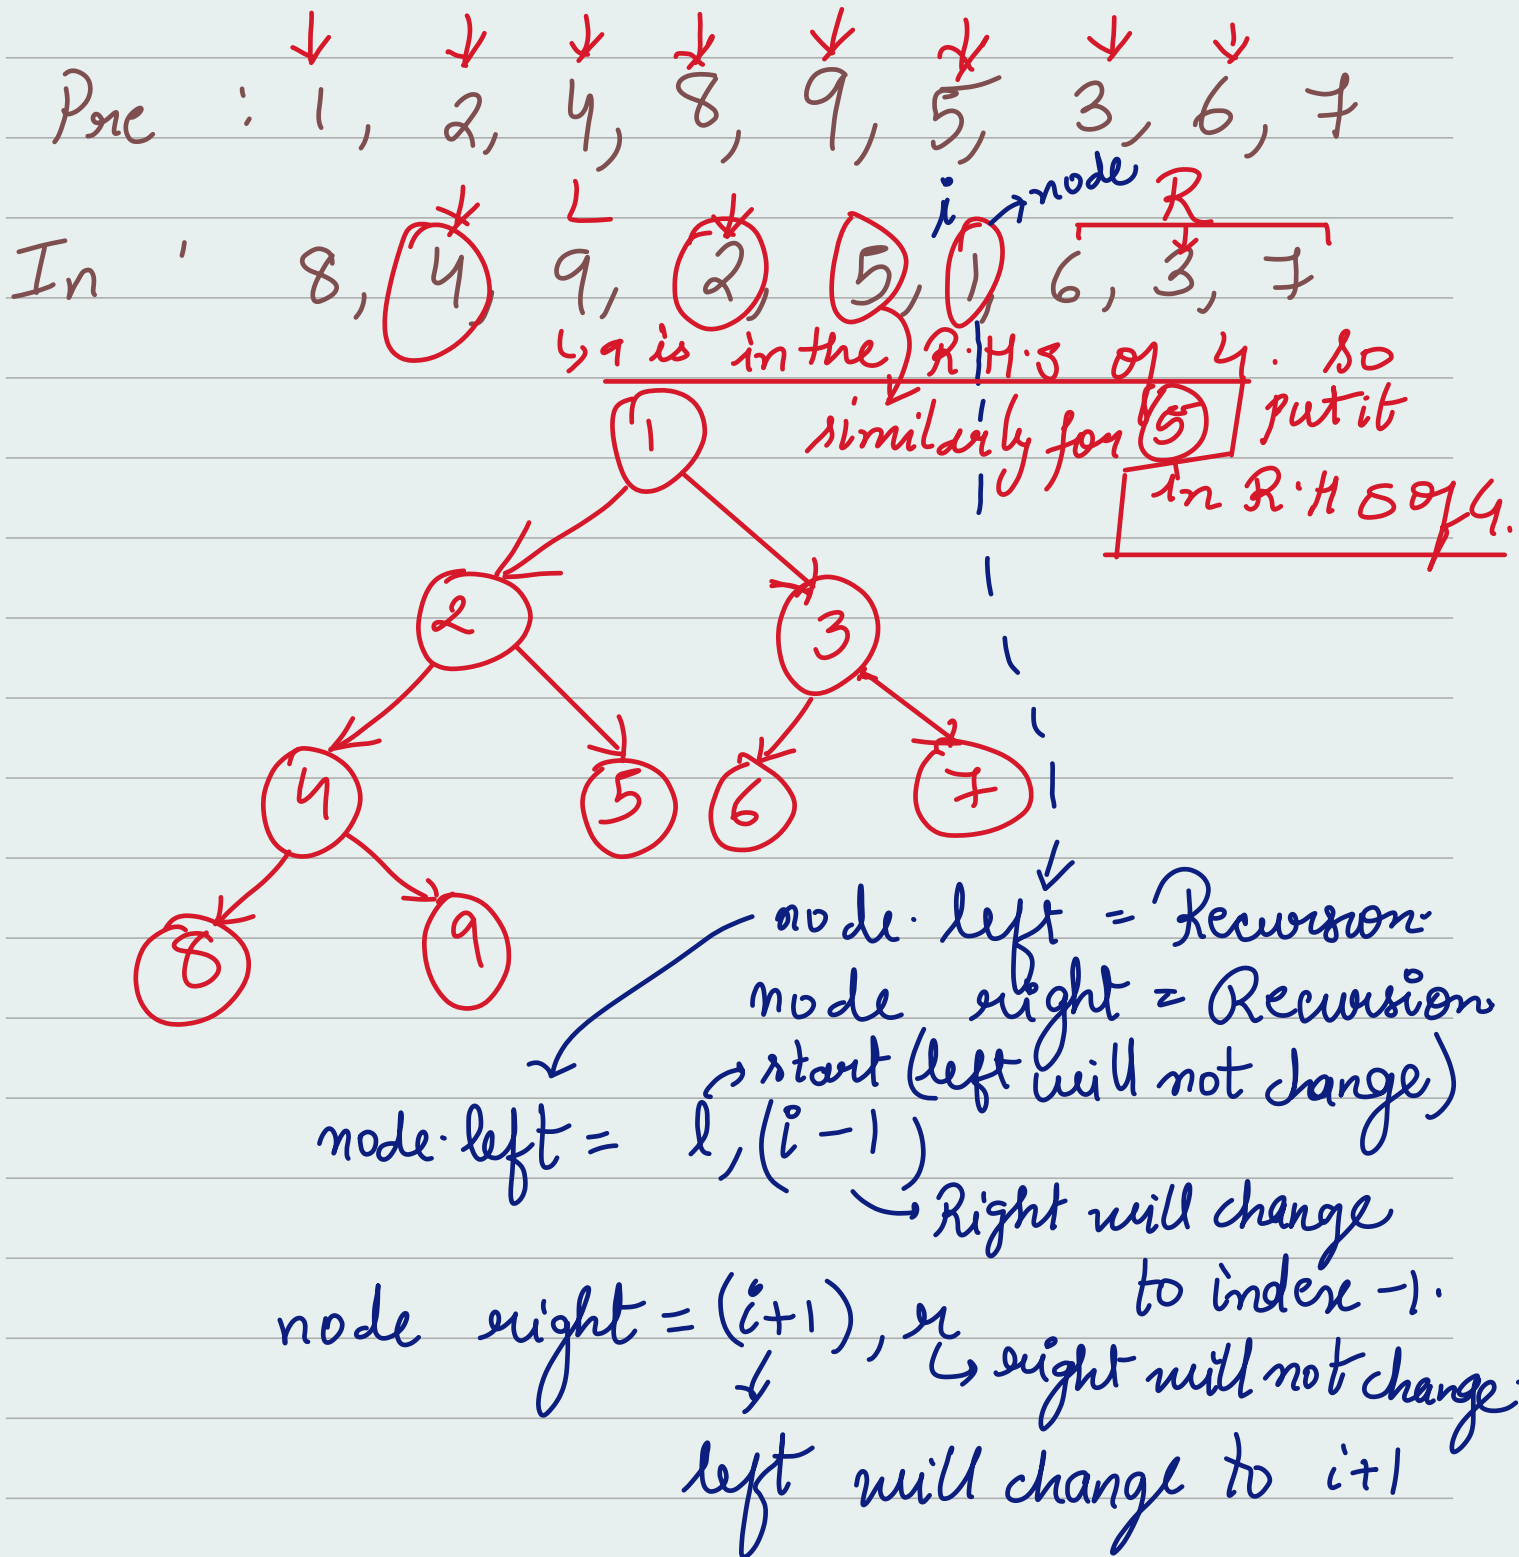 Pre : 1, 2, 4, 8, 9, 5, 3, 6, 7
i → node R
L
In ' 8, 4, 9, 2, 5, 1, 6, 3, 7
↳ 9 is in the R.H.S of 4. so
similarly for 5 put it
in R.H S of 4.
1
2 3
4 5 6 7
8 9
node. left = Recursion.
node right = Recursion
→ start (left will not change)
node. left = l, (i-1)
→ Right will change
to index -1.
node right = (i+1), r
↳ right will not change.
left will change to i+1